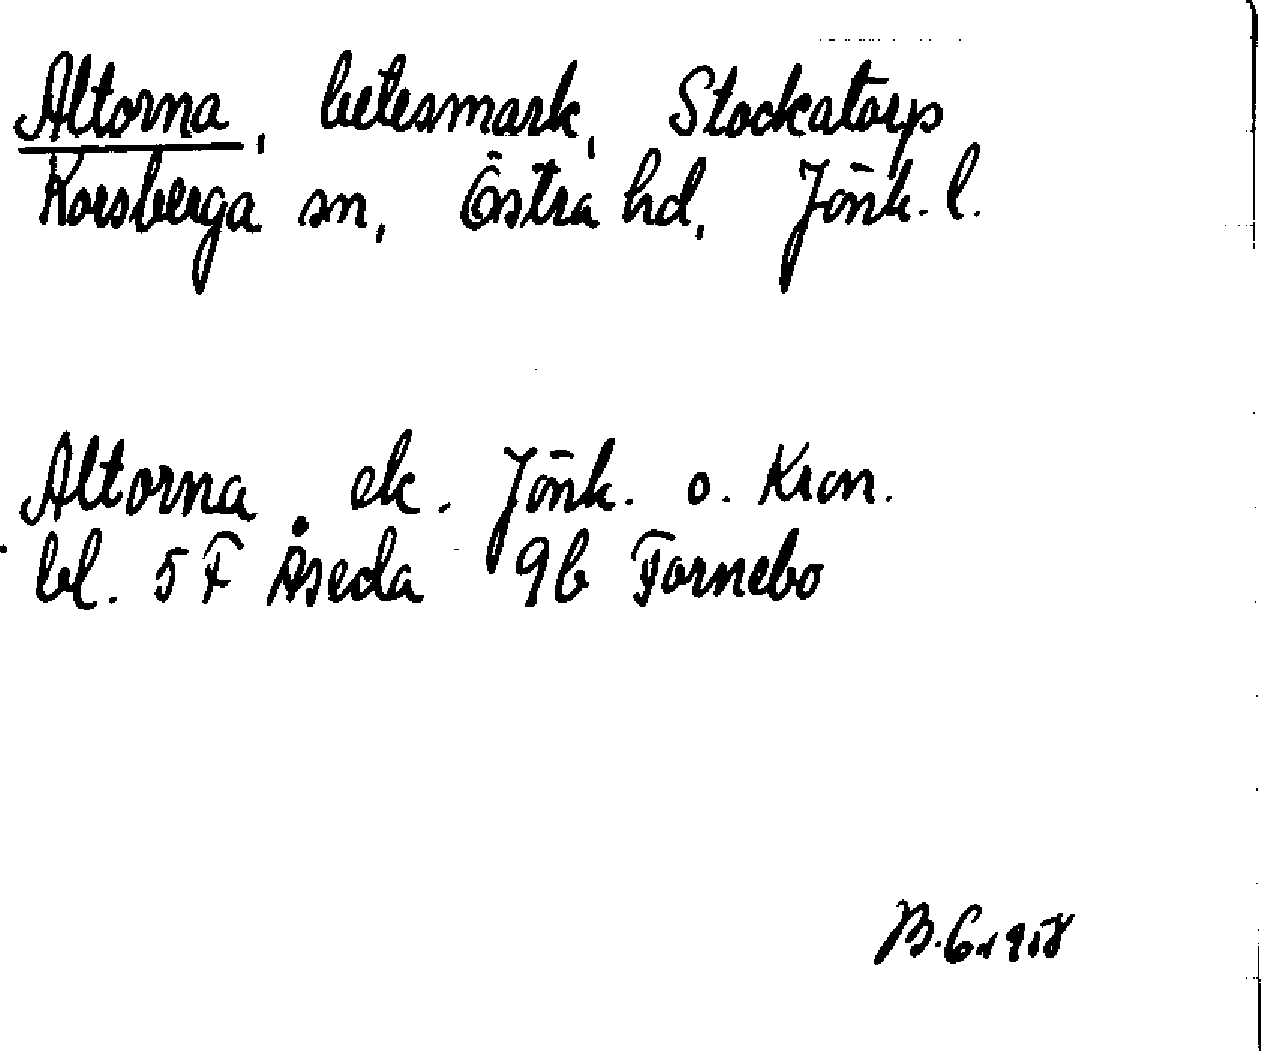 Altorna, betesmark, Stockatorp
Korsberga sn, Östra hd, Jönk. l.
Altorna ek. Jönk. o. Kron.
bl. 5 F Åseda 9b Fornebo
B.G.